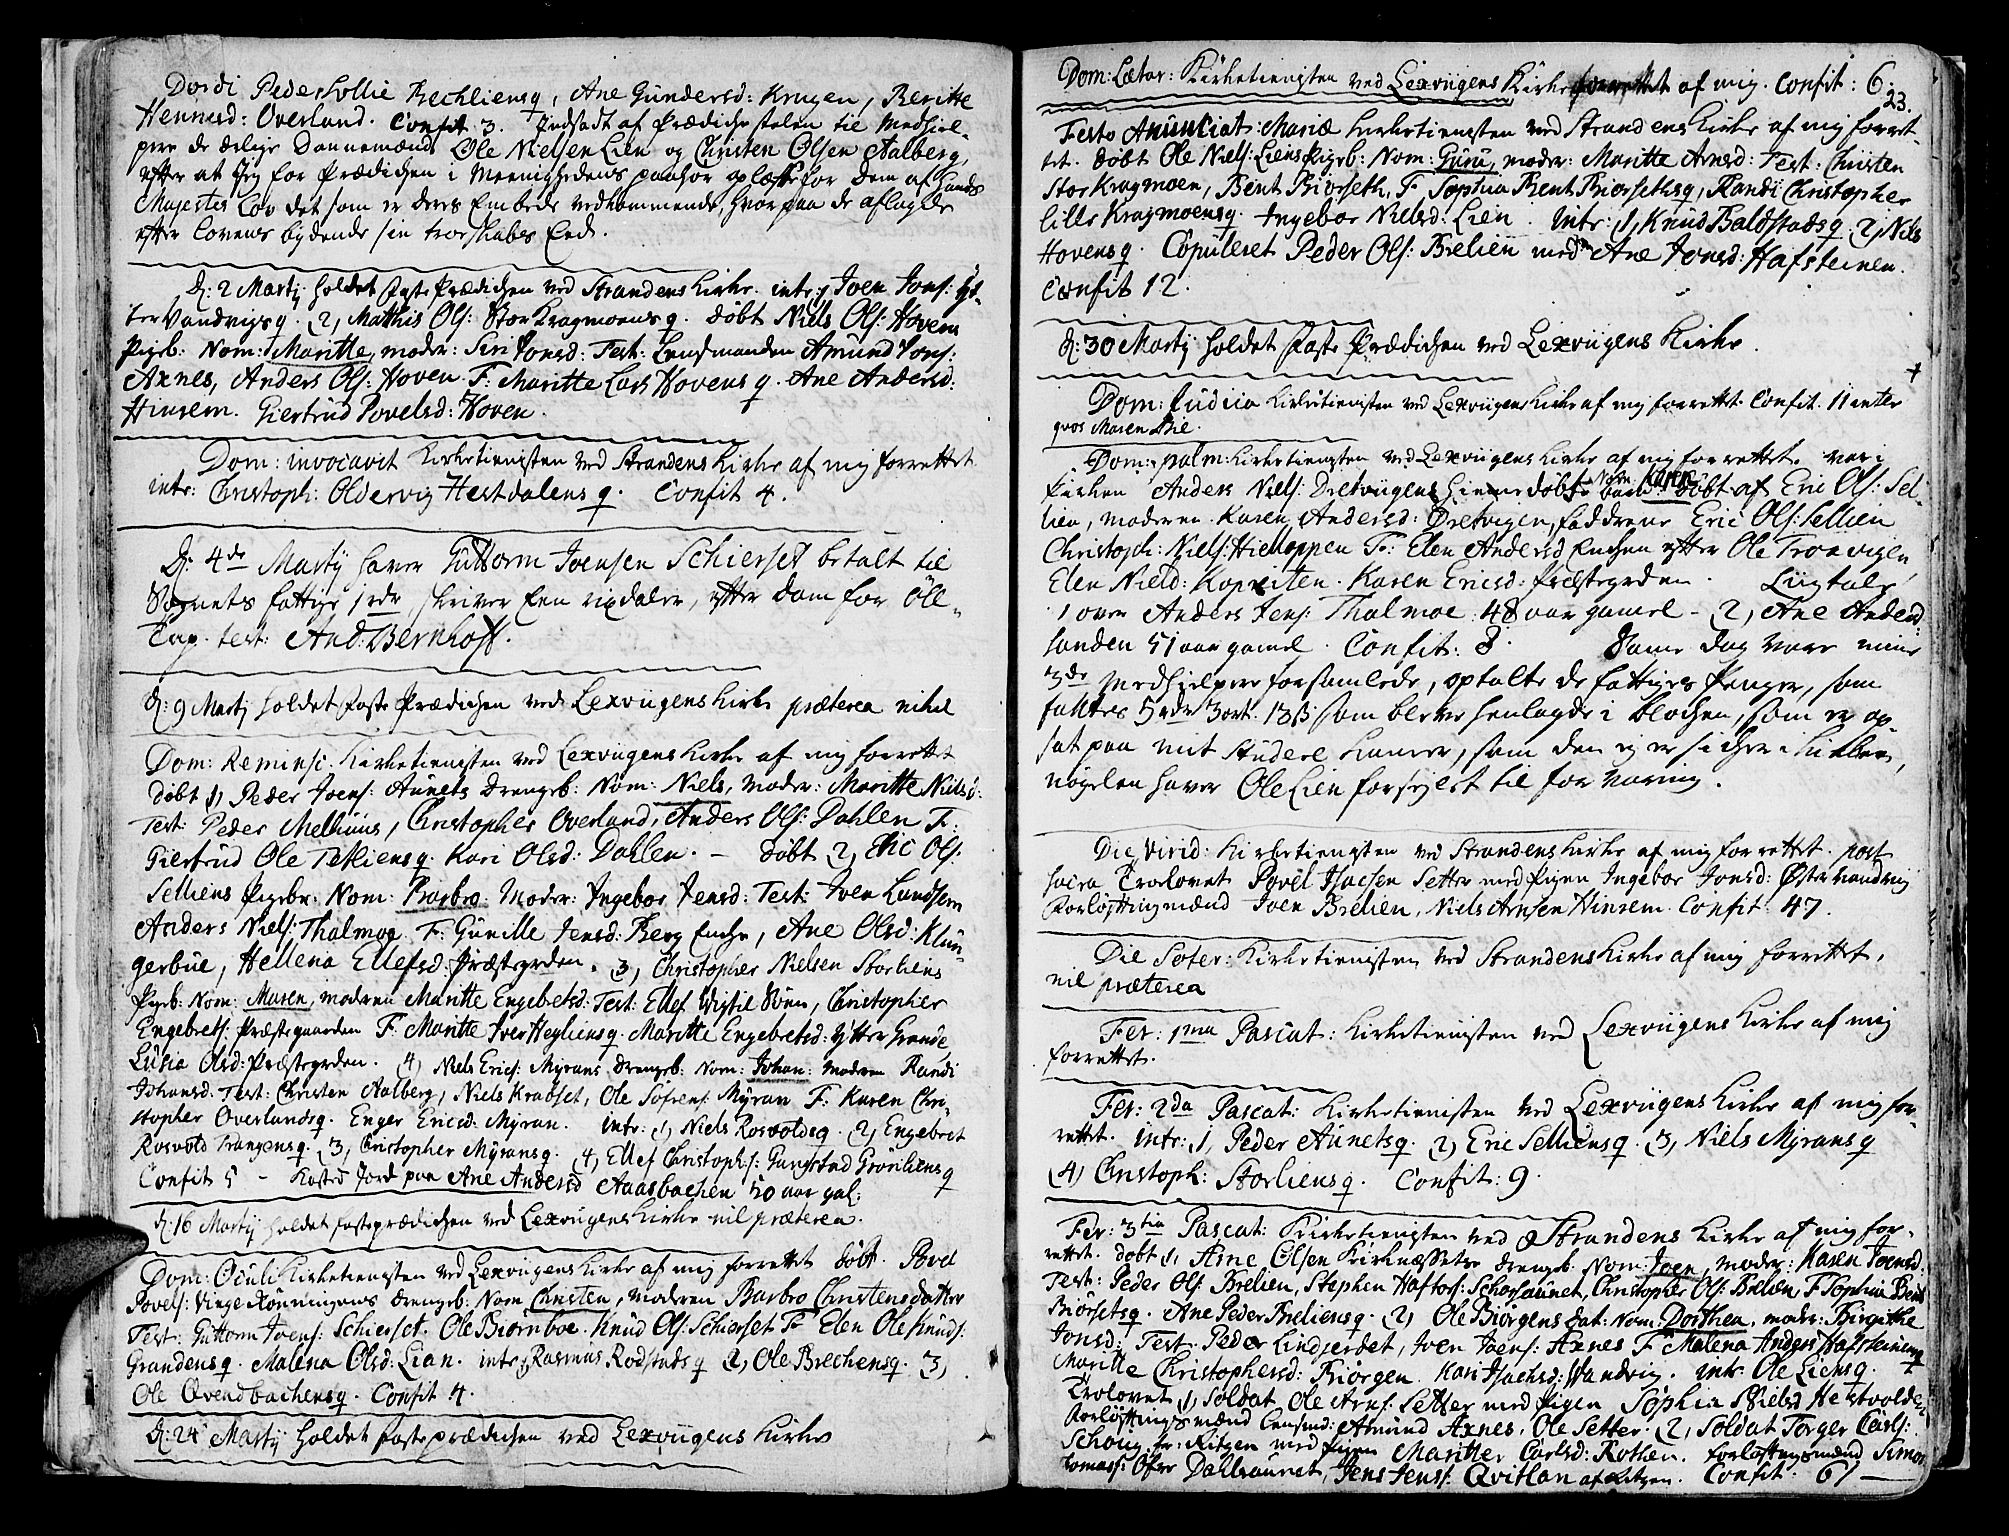 Dordi Peder Sollie Bechliensq, Ane Gundersd: Krugen, Beritte
Hennersd: Overland. Confit 3. Indsadt af Prædichestolen til Medhiel-
pere de ærlige Dannemænd Ole Nielsen Lien og Christen Olsen Aalberg,
efter at Jeg for Prædichen i Meenighedens paahør oplæste for dem af Hands
Majestes Lov det som er deres Embede vedkommende, hvorpaa de aflagde
efter Lovens bydende sin troskabs Eed.
D: 2 Martj holdet faste Prædichen ved Strandens Kirke. intr: 1, Joen Jons: Yt-
ter Vandvigsq. 2, Matthis Ols: Stor Kragmoensq. Døbt Niels Ols: Hovens
Pigeb: Nom: Maritte, moder: Siri Jonsd: Test: Lensmanden Amund Jons:
Axnes, Anders Ols: Hoven. F: Maritte Lars Hovens q. Ane Andersd:
Hinsem. Giertrud Povelsd: Hoven.
Dom: invocavit Kirketienesten ved Strandens Kirke af mig forrettet
intr: Christoph: Oldervig Hestdalensq. Confit 4.
D: 4de Martj haver Guttorm Joensen Schierset betalt til
Sognets fattige 1 rdr, skriver Een rixdaler, efter dom for Öll-
Tap. test: And: Bernhoft.
D: 9 Martj holdet faste Prædichen ved Lexvigens Kirke præterea nihil
Dom: Reminsc: Kirketienesten ved Lexvigens Kirke af mig forrettet
Døbt 1, Peder Joens: Aunets drengeb: Nom: Niels, moder: Maritte Nielsd:
Test: Peder Melhuus, Christopher Overland, Anders Ols: Dahlen F:
Giertrud Ole Tetliensq. Kari Olsd: Dahlen. – Døbt 2, Eric Ols:
Selliens Pigebr: Nom: Barbro. Moder: Ingebor Jensd: Test: Iver Lundsem
Anders Niels: Thalmoe. F: Gunille Jensd: Berg Enche, Ane Olsd: Klun-
gerbue, Hellena Ellefsd: Præstegrden. 3, Christopher Nielsen Storliens
Pigeb: Nom: Maren, moderen Maritte Engebretsd: Test: Ellef Wigtil Søen, Christopher
Engebrets: Præstegaarden F: Maritte Iver Heyliensq. Maritte Engebretsd: Ytter Grande
Lusia Olsd: Præstegrden. 4, Niels Erics: Myrans drengeb: Nom: Johan: moderen Randi
Johansd. Test: Christen Aalberg, Niels Krabset, Ole Sofrens: Myran F: Karen Chri-
stopher Overlandsq. Enger Ericsd: Myran. intr: 1, Niels Rosvoldsq. 2, Engebret
Rosvold Trangensq. 3, Christopher Myransq. 4, Ellef Christoph:s: Gangstad Grønliensq
Confit 5 – Kasted Jord paa Ane Andersd Aaasbachen 50 aar gal:
D: 16 Martj holdet fasteprædichen ved Lexvigens Kirke nil præterea.
Dom: Oculi Kirketienesten ved Lexvigens Kirke af mig forrettet Døbt. Povel
Povels: Vinge Rønningens drengeb: Nom Christen, moderen Barbro Christensdatter
Test: Guttorm Joens: Schierset. Ole Biørnboe. Knud Ols: Schierset F Elen Ole Knuds:
Grandensq. Malena Olsd: Lian. intr: 1, Rasmus Rodstadsq 2, Ole Brechensq. 3,
Ole Qvendbachensq. Confit 4.
D: 24 Martj holdet fasteprædichen ved Lexvigens Kirke
Dom: Lætar: Kirketienesten ved Lexvigens Kirke forrettet af mig. Confit: 6.
23.
Festo Anunciat: Mariæ Kirketienesten ved Strandens Kirke af mig forret-
tet. Døbt Ole Niels: Liens Pigeb: Nom: Guru, moder: Maritte Arnsd: Test: Christen
Stor Kragmoen, Bent Biørseth, F Sophia Bent Biørsethsq, Randi Christopher
Lille Kragmoensq. Ingebor Nielsd: Lien. Intr: 1, Knud Baldstadsq. 2, Niels
Hovensq. Copuleret Peder Ols: Brelien med Ane Jonsd: Hafsteinen.
Confit 12.
D: 30 Martj holdet faste Prædichen ved Lexvigens Kirke.
Dom: Judica Kirketienesten ved Lexvigens Kirke af mig forrettet. Confit. 11 inter
quos Maren Bie.
Dom: palm: Kirketienesten ved Lexvigens Kirke af mig forrettet. var i
Kirken Anders Niels: Dretvigens hiemedøbte barn Nom: Karen Døbt af Eric Ols: Sel-
lien, moderen Karen Andersd: Dretvigen, faddrene Eric Ols: Sellien
Christoph: Niels: Hielloppen F: Elen Andersd Enchen efter Ole Troavigen,
Elen Nielsd: Kopreiten. Karen Ericsd: Præstegrden. Liigtale
1 over Anders Jens: Thalmoe 48 aar gamel – 2, Ane Andersd:
Sanden 51 aar gamel. Confit: 8. Same dag vare mine
3de Medhielpere forsamlede, optalte de fattiges Penger, som
fantes 5 rdr 3 ort. 13 ß som bleve henlagde i blochen, som er op-
sat paa mit Studere Kamer, som den ej er sicher i Kirken,
nøgelen haver Ole Lien forsejlet til forvaring.
Die Virid: Kirketienesten ved Strandens Kirke af mig forrettet. post
sacra Trolovet Povel Isacsen Setter med Pigen Ingebor Jonsd: Østervandvig
Forløftingmænd Joen Brelien, Niels Arnsen Hinsem. Confit: 47.
Die Soter: Kirketienesten ved Strandens Kirke af mig forrettet,
nil præterea
Fer: 1ma Pascat: Kirketienesten ved Lexvigens Kirke af mig
forrettet.
Fer: 2da Pascat: Kirketienesten ved Lexvigens Kirke af mig for-
rettet. intr: 1, Peder Aunetsq. 2, Eric Selliensq. 3, Niels Myransq
4, Christoph: Storliensq. Confit: 9.
Fer: 3tia Pascat: Kirketienesten ved Strandens Kirke af mig for-
rettet. Døbt 1, Arne Olsen Kirknessets drengeb: Nom: Joen, moder: Karen Joensd.
Test: Peder Ols: Brelien, Stephen Haftors: Schorsaunet, Christopher Ols: Brelien F Sophia Bent
Biørsetsq. Ane Peder Breliensq. 2, Ole Biørgens Dat: Nom: Dorthea, modr: Birgithe
Jonsd: Test. Peder Lindjerdet, Iven Joens: Axnes F Malena Anders Hafsteinensq
Maritte Christophersd: Biørgen. Kari Isachsd: Wandvig. intr: Ole Liensq.
Trolovet 1, Soldat Ole Arns: Setter med Pigen Sophia Nielsd Hestvolden
Forløftings mænd Lensmd: Amund Axnes, Ole Setter. 2, Soldat Torger Carls:
Schoug fr: Ritzen med Pigen Maritte Carlsd: Rotlen. Forløftingsmænd Simon
Tomass: Øfre Dahlsaunet, Jens Jens: Qvitlan af Ritzen. Confit. 61 –